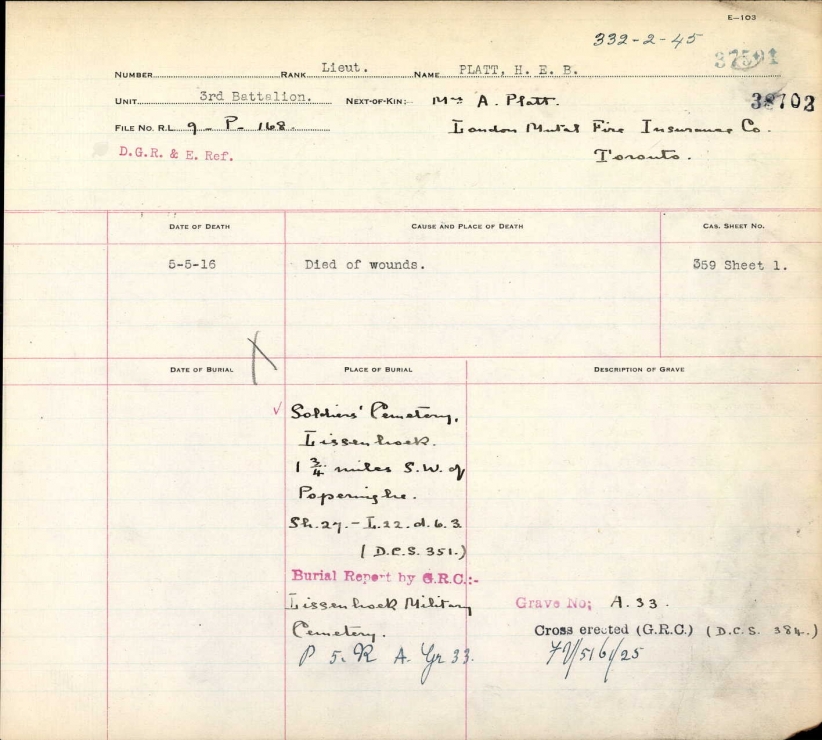 E—103
332-2-45
37591
NUMBER RANK Lieut. NAME PLATT, H. E. B.
UNIT 3rd Battalion. NEXT-OF-KIN:- Mrs A. Platt. 38702
FILE NO. R.L. 9-P-168. London Mutal Fire Insurance Co.
D.G.R. & E. Ref. Toronto.
DATE OF DEATH CAUSE AND PLACE OF DEATH CAS. SHEET NO.
5-5-16 Died of wounds. 359 Sheet 1.
DATE OF BURIAL PLACE OF BURIAL DESCRIPTION OF GRAVE
Soldiers' Cemetery,
Lissenhoek.
1 3/4 miles S.W. of
Poperinghe.
Sh.27.-L.22.d.6.3
(D.C.S. 351.)
Burial Report by G.R.C.:-
Lissenhoek Military Grave No; A.33.
Cemetery. Cross erected (G.R.C.) (D.C.S. 384.)
P 5. R A. Gr 33.